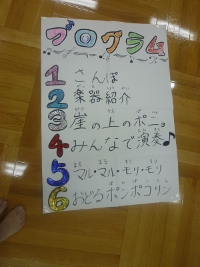 プログラム
1 さんぽ
2 楽器紹介
3 崖の上のポニョ
4 みんなで演奏♪
5 マル・マル・モリ・モリ
6 おどるポンポコリン